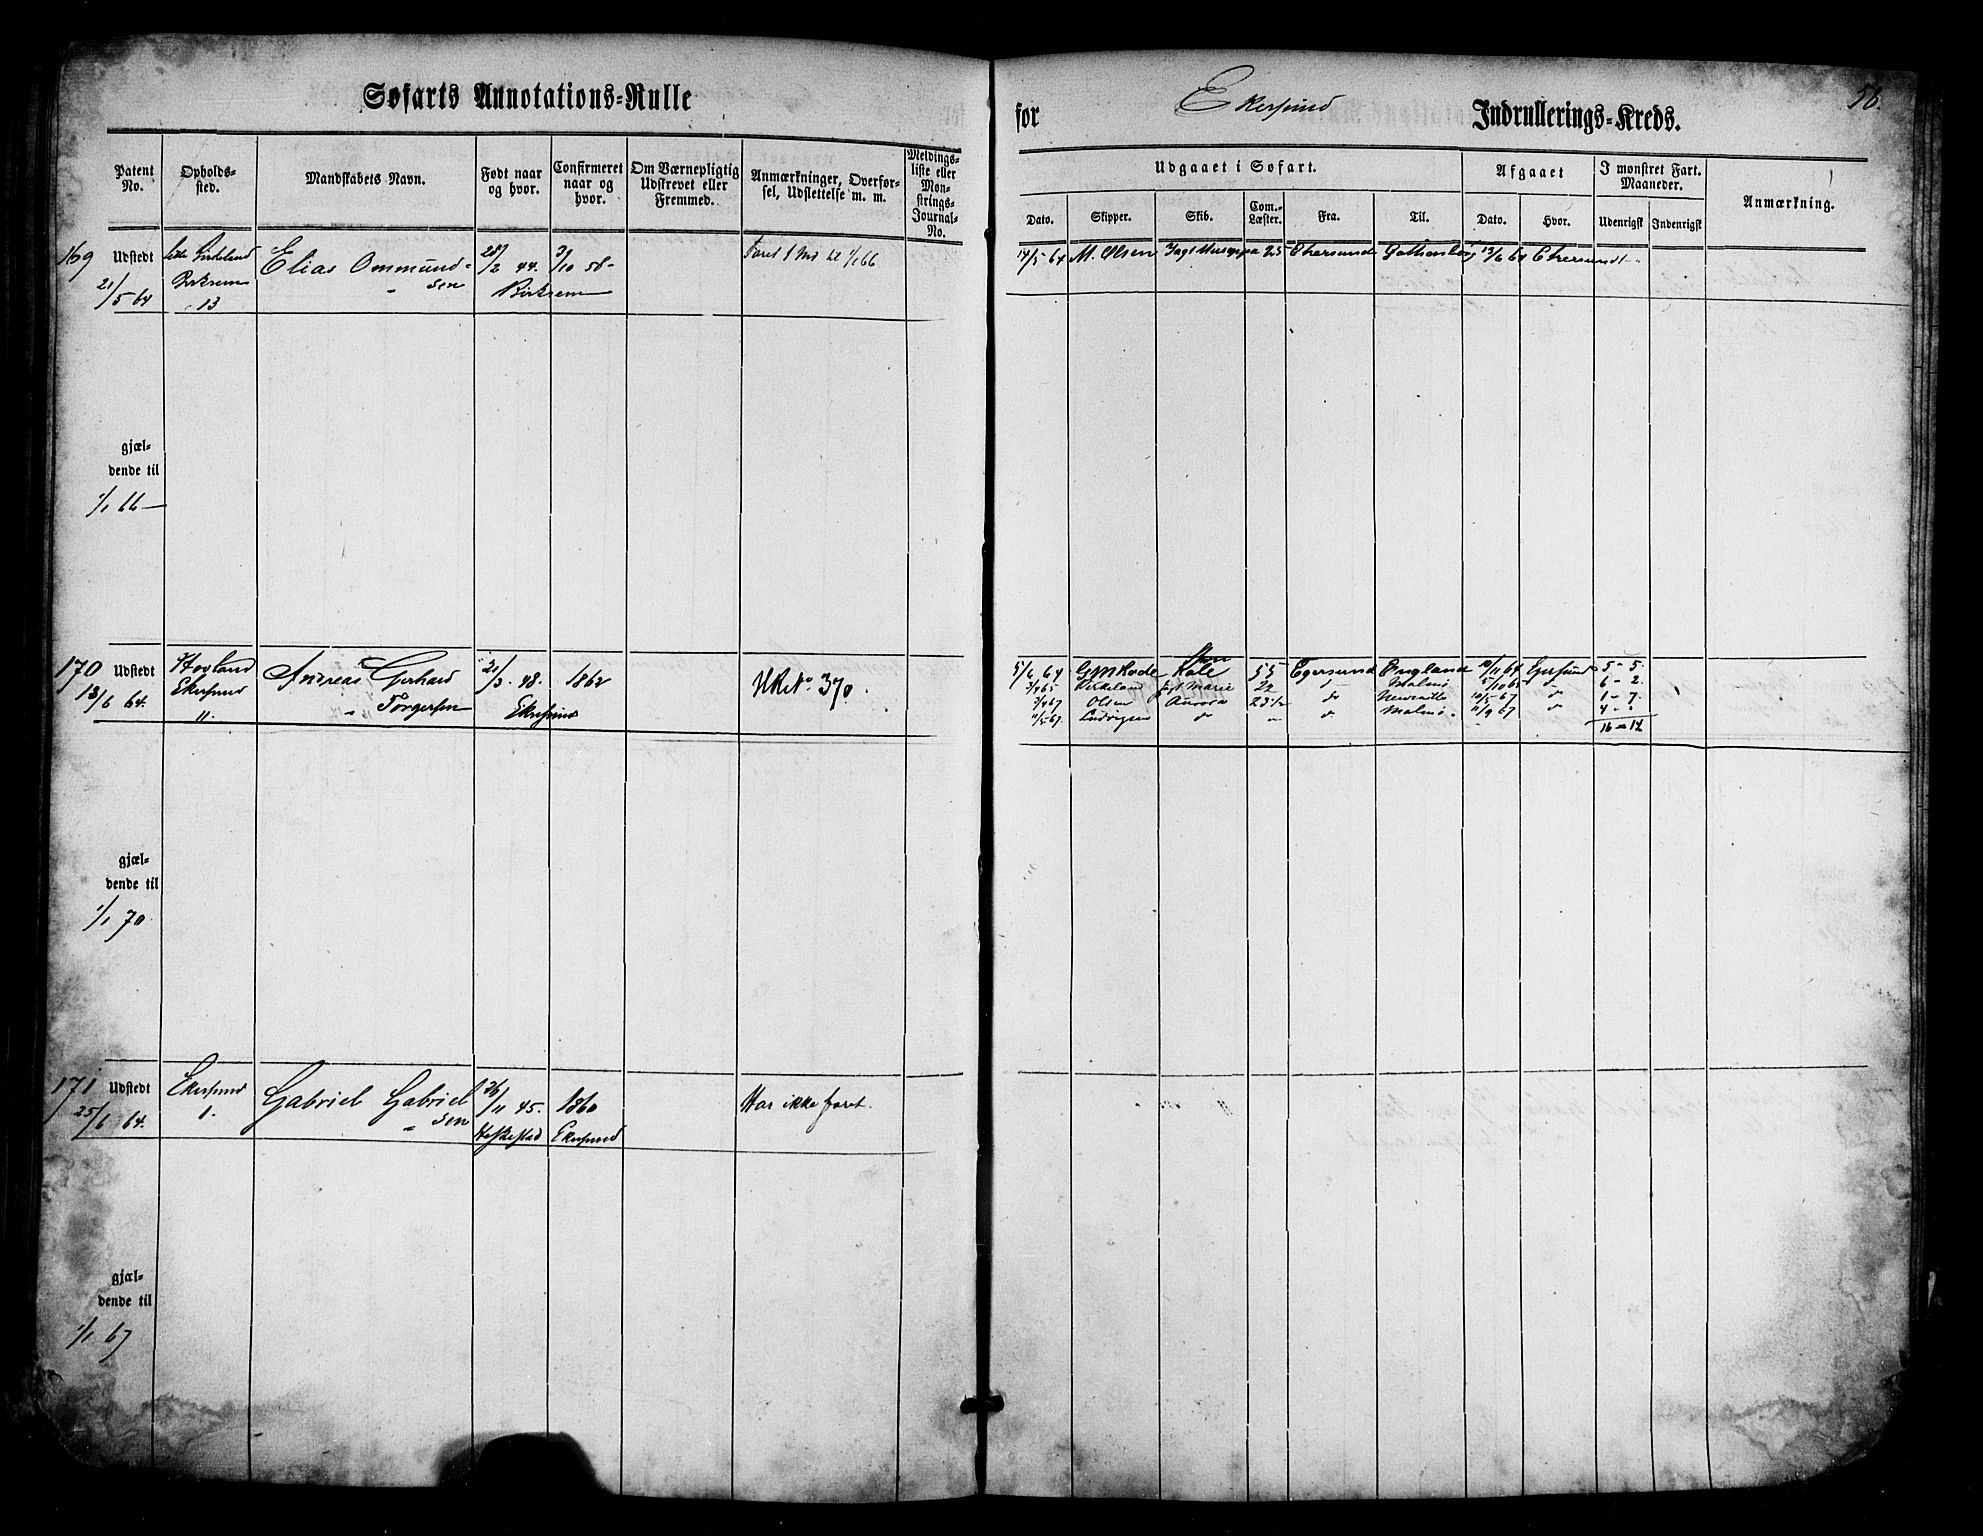 Søfarts Annotations=Rulle
for Ekersund Indrullerings=Kreds.
58.
Patent No.
Opholds-sted.
Mandskabets Navn.
Født naar og hvor.
Confirmeret naar og hvor.
Om Værnepligtig Udskrevet eller Fremmed.
Anmærkninger, Overførsel, Udslettelse m. m.
Meldings-liste eller Mønstrings-Journal-No.
Udgaaet i Søfart.
Afgaaet
I mønstret Fart. Maaneder.
Anmærkning.
Dato.
Skipper.
Skib.
Com.-Læster.
Fra.
Til.
Dato.
Hvor.
Udenrigst
Indenrigst
169 Udstedt
21/5 64
Birkrem
13
Elias Ommund-
sen
28/2 44.
Birkrem
3/10 58
Faret 1 Md til 1/1 66
17/5 64 M. Olsen Jagt 25 Ekersund Gothenborg 13/6 64 Ekersund
gjæl-
dende til
1/1 66
170 Udstedt
13/6 64.
Hovland
Ekersund
11.
Andreas Gerhard
Torgersen
21/3 48.
Ekersund
1862
370.
5/6 64 55 Egersund England 10/11 64 Egersund 5 - 5.
Kirkeland Jagt Marie 22 do Malmø 5/10 65 do 6 - 2.
3/4 67 Olsen Aurora 23 1/2 do Newcastle 10/5 67 do 1 - 7.
11/5 67 Ludvigsen do " do Malmø 11/9 67 do 4 - "
16 - 14
gjæl-
dende til
1/1 70
171 Udstedt
25/6 64.
Ekersund
1.
Gabriel Gabriel
sen
26/11 45.
Heskestad
1860
Ekersund
Har ikke faret.
gjæl-
dende til
1/1 67